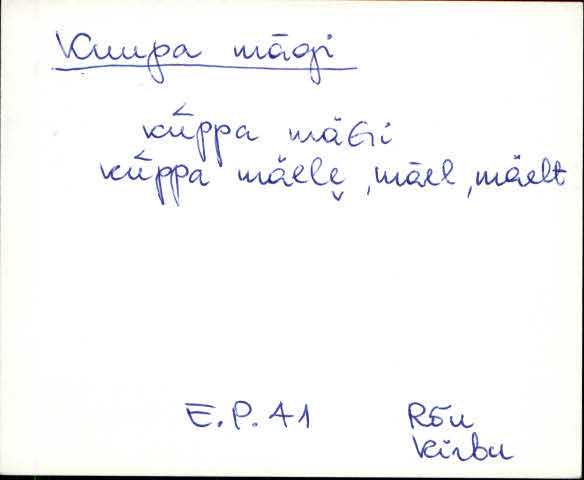 Kuupa mägi
kū̆ppa mäGi
kū̆ppa mäele̬, mäel, mäelt
E.P. 41
Rõu
Kirbu